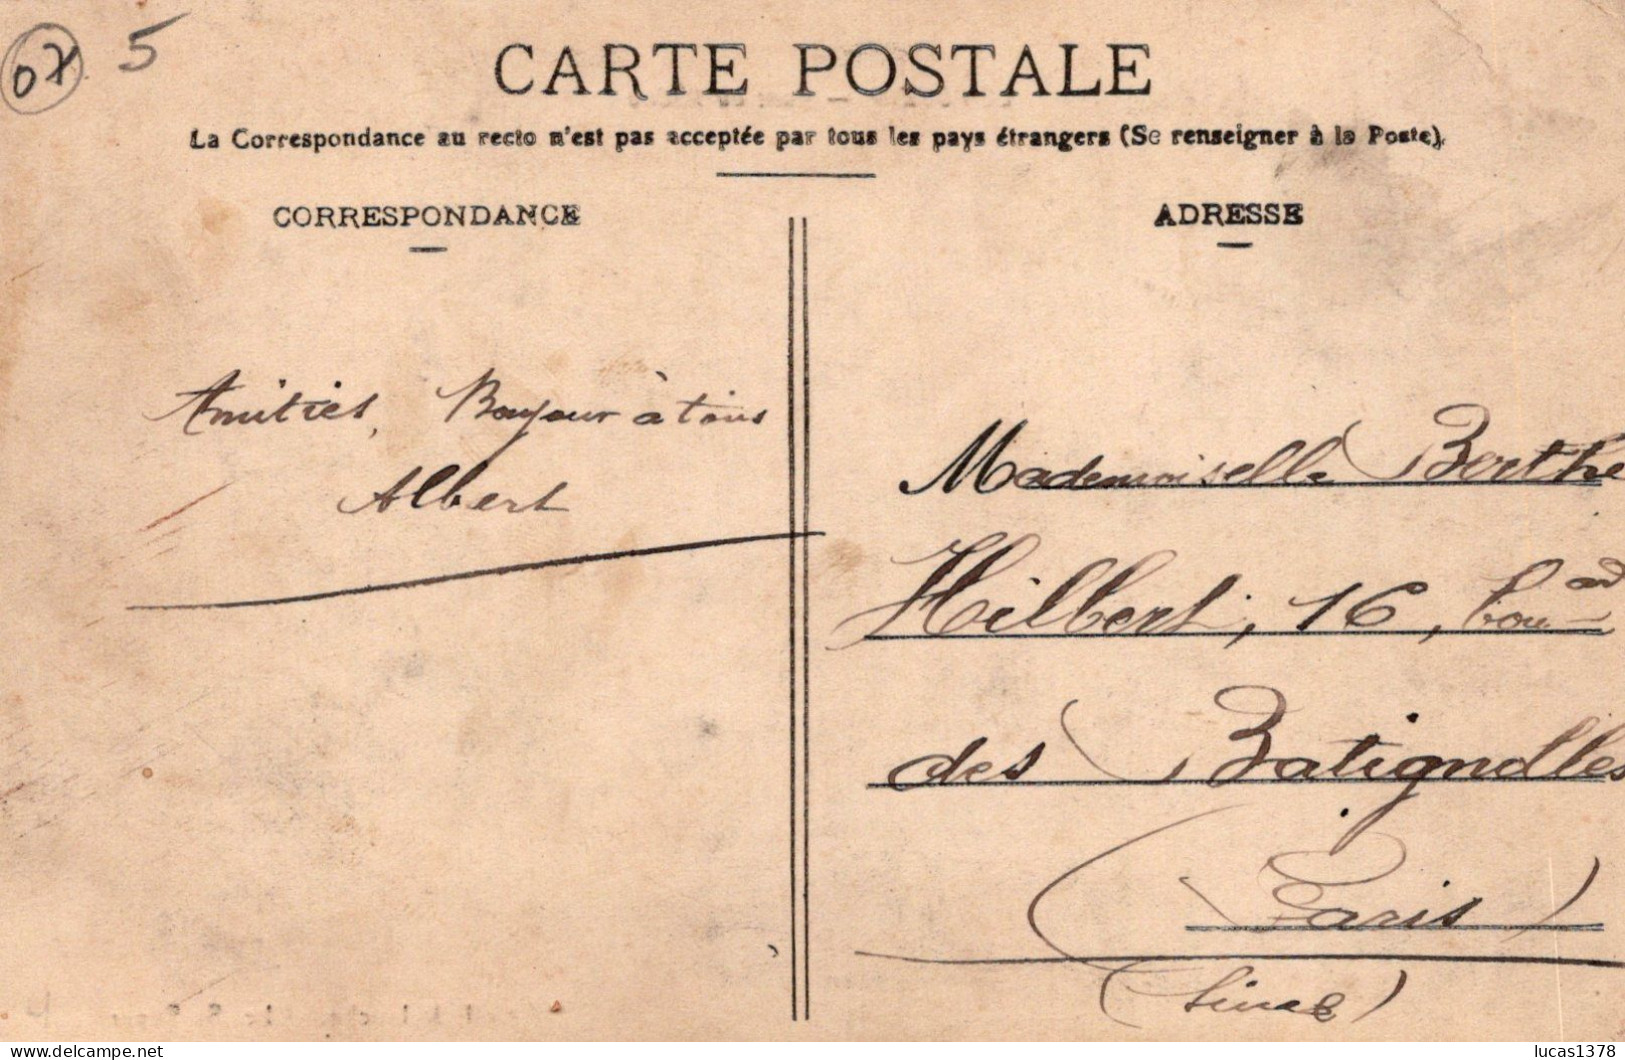 07 5
CARTE POSTALE
La Correspondance au recto n'est pas acceptée par tous les pays étrangers (Se renseigner à la Poste).
CORRESPONDANCE
Amitiés, Bonjour à tous
Albert
ADRESSE
Mademoiselle Berthe
Hilbert, 16, bou^ard
des Batignolles
(Paris)
lucas1378